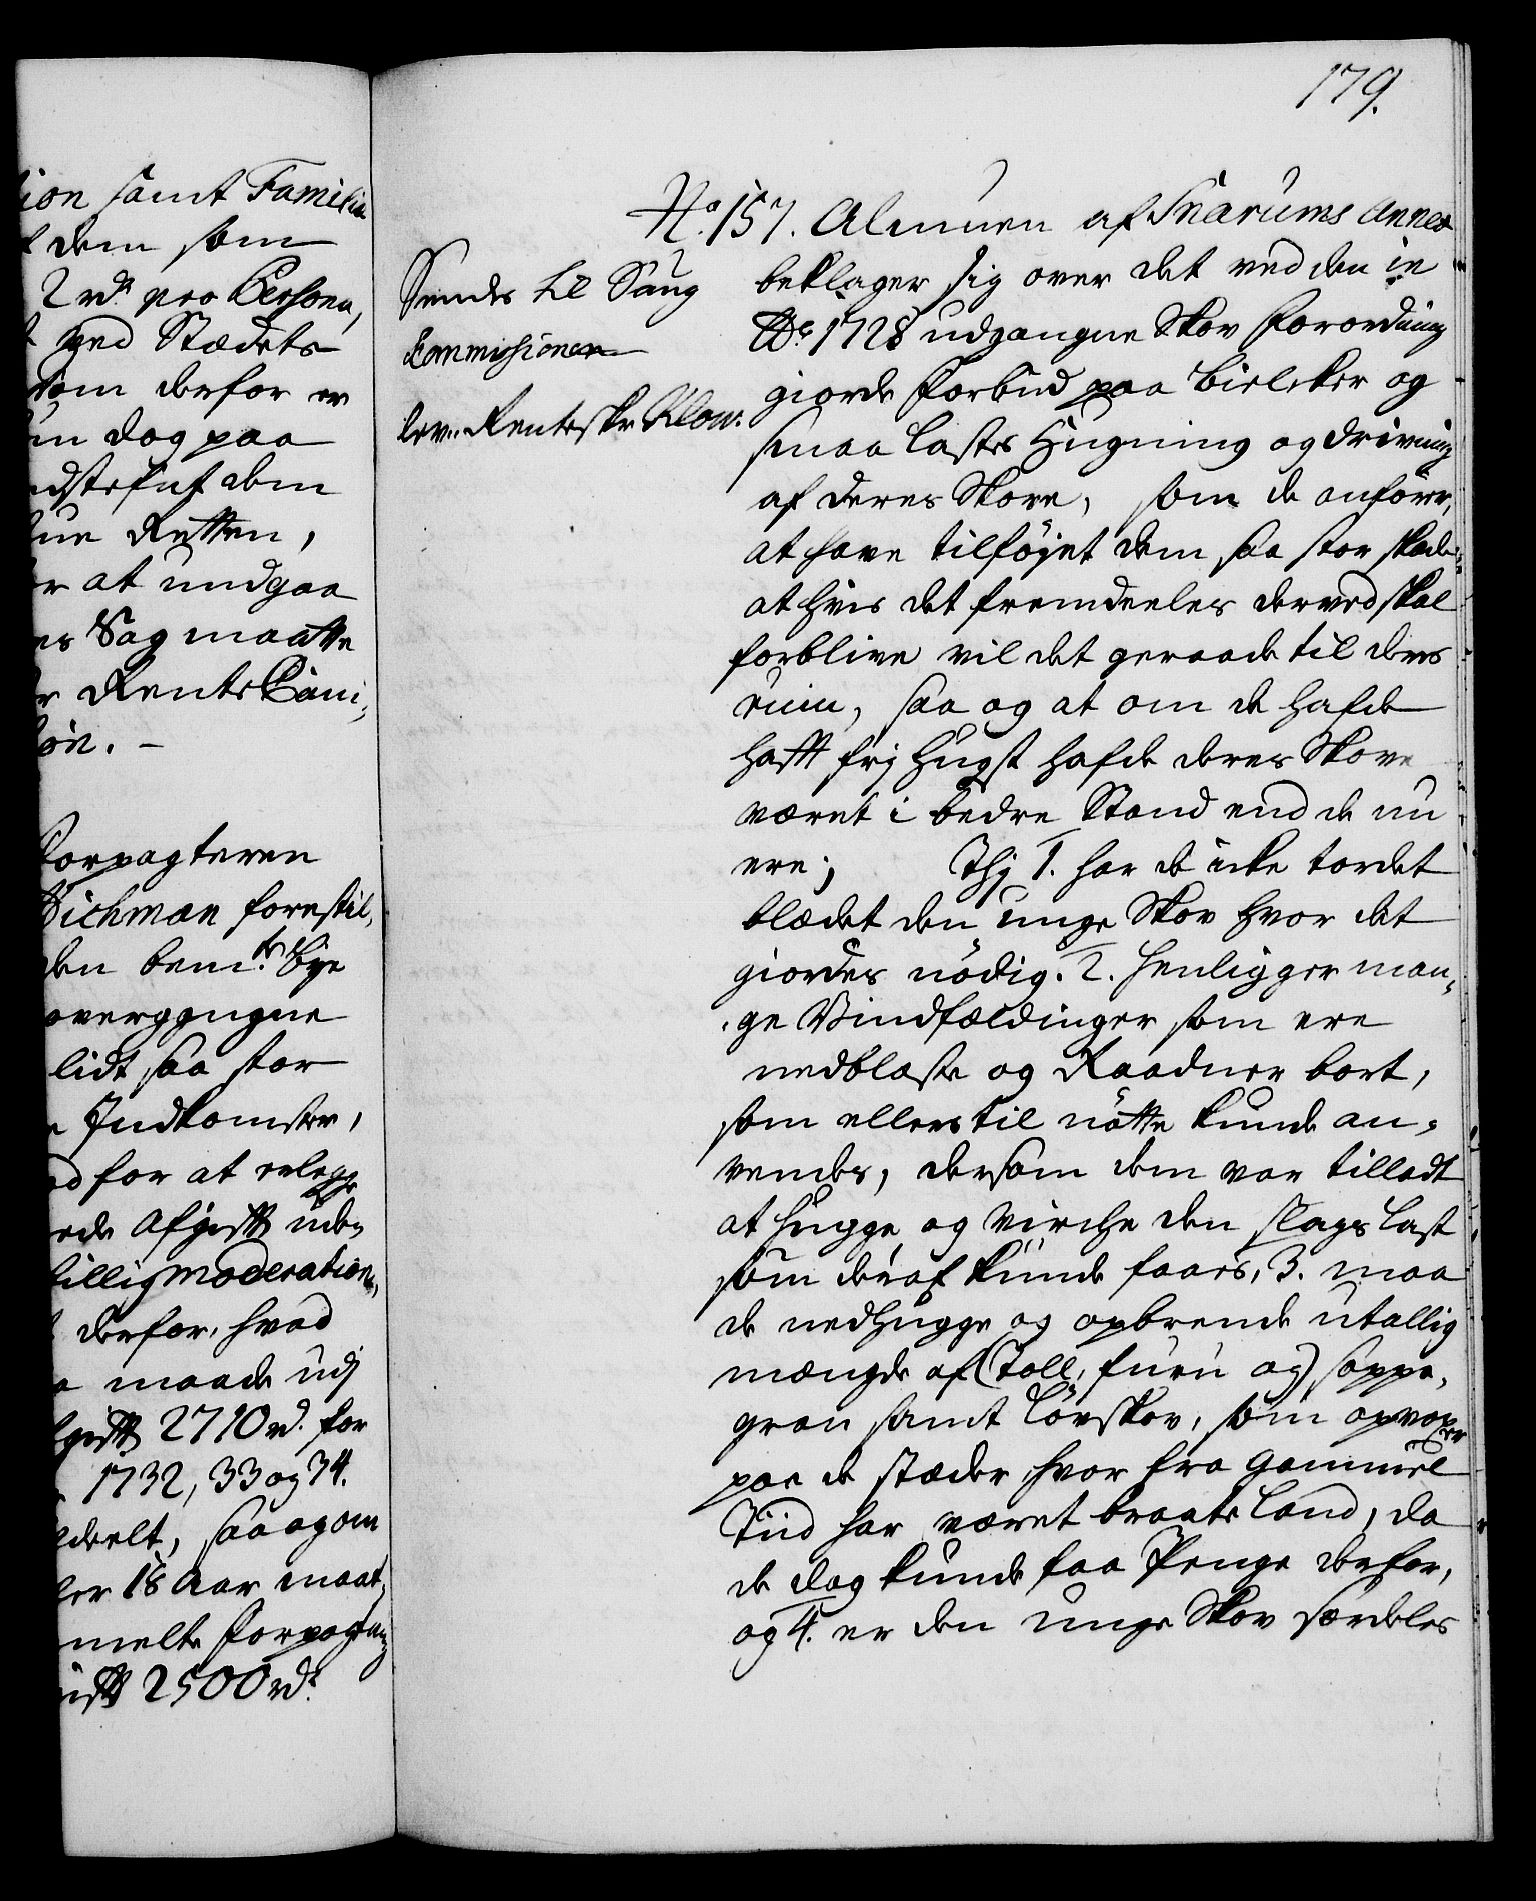 179.
ion samt Familie
dem som
2 rd. pro Persona,
ved Stædets
som derfor er
dog paa
dem
Retten,
at undgaa
Sag maatte
Rente Cam¬
Forpagteren
Wichman forestil¬
den bem.te Bye
overgangne
lidt saa stor
Indkomster,
for at erlegge
Afgifft uden
billig moderation,
derfor, hvad
maade udj
2710 rd. for
1732, 33 og 34.
deelt, saa og om
18 Aar maat¬
melte Forpagtning
2500 rd.
N.o 157. Almuen af Snarums Annex
beklager sig over det ved den in
A.o 1728 udgangne Skov Forordning
giorde Forbud paa Bielcker og
smaa Lastes Hugning og drivning
af deres Skove, som de anfører,
at have tilføjet dem saa stor skade
at hvis det fremdeeles derved skal
forblive vil det geraade til deres
ruin, saa og at om de hafde
hafft frj Hugst hafde deres Skove
været i bedre Stand end de nu
ere; Thj 1. har de icke tordet
blædet den unge Skov hvor det
giordes nödig. 2. henligger man¬
ge Vindfældinger som ere
nedblæste og Raadner bort,
som ellers til nötte kunde an¬
vendes, dersom dem var tilladt
at hugge og virche den slags Last
som deraf kunde faaes, 3. maa
de nedhugge og opbrende utallig
mængde af (Toll, furu og) toppe,
gran samt Löfskov, som opvoxer
paa de stæder hvor fra gammel
Tiid har været braate Land, da
de dog kunde faa Penge derfor,
og 4. er den unge Skov særdeles
Sendes til Saug
Commissionen
lev. Renteskr. Klow.